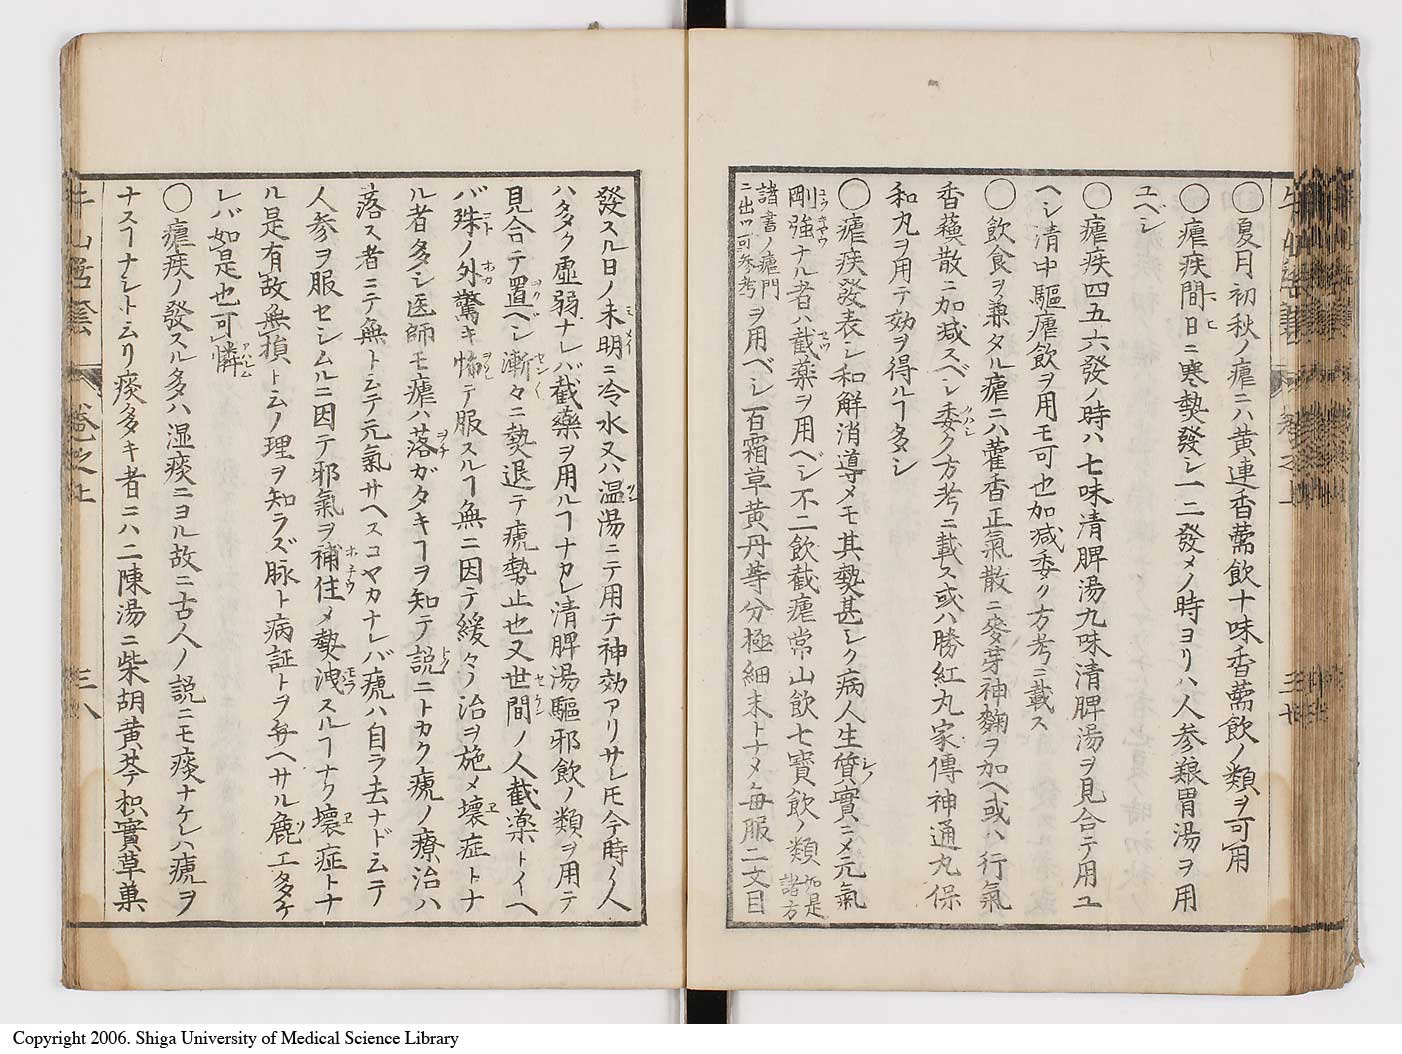 〇夏月初秋ノ瘧ニハ黄連香薷飲十味香薷飲ノ類ヲ可用
〇瘧疾間日ニ寒𤍠發シ一二發メノ時ヨリハ人参養胃湯ヲ用
ユヘシ
〇瘧疾四五六發ノ時ハ七味清脾湯九味清脾湯ヲ見合テ用ユ
ヘシ清中驅瘧飲ヲ用モ可也加減委ク方考ニ載ス
〇飲食ヲ兼タル瘧ニハ藿香正氣散ニ麥芽神麹ヲ加ヘ或ハ行氣
香薷散ニ加減スベシ委ク方考ニ載ス或ハ勝紅丸家傳神通丸保
和丸ヲ用テ効ヲ得ルヿ多シ
〇瘧疾發表シ和解消導メモ其𫝑甚シク病人生質實ニメ元氣
剛強ナル者ハ截薬ヲ用ベシ不二飲截瘧常山飲七寳飲ノ類如是諸方
諸書ノ瘧門ニ出ツ可参考ヲ用ベシ百霜草黄丹等分極細末トナメ毎服二文目
牛山活套 巻之上 三七
發スル日ノ未明ニ冷水又ハ温湯ニテ用テ神効アリサレ𪜈今時ノ人
ハ多ク虚弱ナレバ截藥ヲ用ルヿナカレ清脾湯驅邪飲ノ類ヲ用テ
見合テ置ベシ漸々ニ𤍠退テ瘧𫝑止也又世間ノ人截藥トイヘ
バ殊ノ外驚キ怖テ服スルヿ無ニ因テ緩々ノ治ヲ施メ壊症トナ
ル者多シ医師モ瘧ハ落ガタキヿヲ知テ説ニトカク瘧ノ療治ハ
落ス者ニテ無ト云テ元氣サヘスコヤカナレバ瘧ハ自ラ去ナド云テ
人参ヲ服セシムルニ因テ邪氣ヲ補住メ𫝑洩スルヿナク壊症トナ
ル是有故無損ト云ノ理ヲ知ラズ脉ト病証トヲ弁ヘサル麁エタケ
レバ如是也可憐
〇瘧疾ノ發スル多ハ湿痰ニヨル故ニ古人ノ説ニモ痰ナケレハ瘧ヲ
ナスヿナシト云リ痰多キ者ニハ二陳湯ニ柴胡黄芩枳實草菓
牛山活套 巻之上 三八
Copyright 2006. Shiga University of Medical Science Library